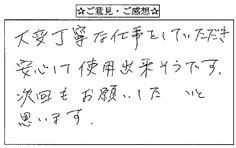 ☆ご意見・ご感想☆
大変丁寧な仕事をしていただき
安心して使用出来そうです。
次回もお願いしたいと
思います。